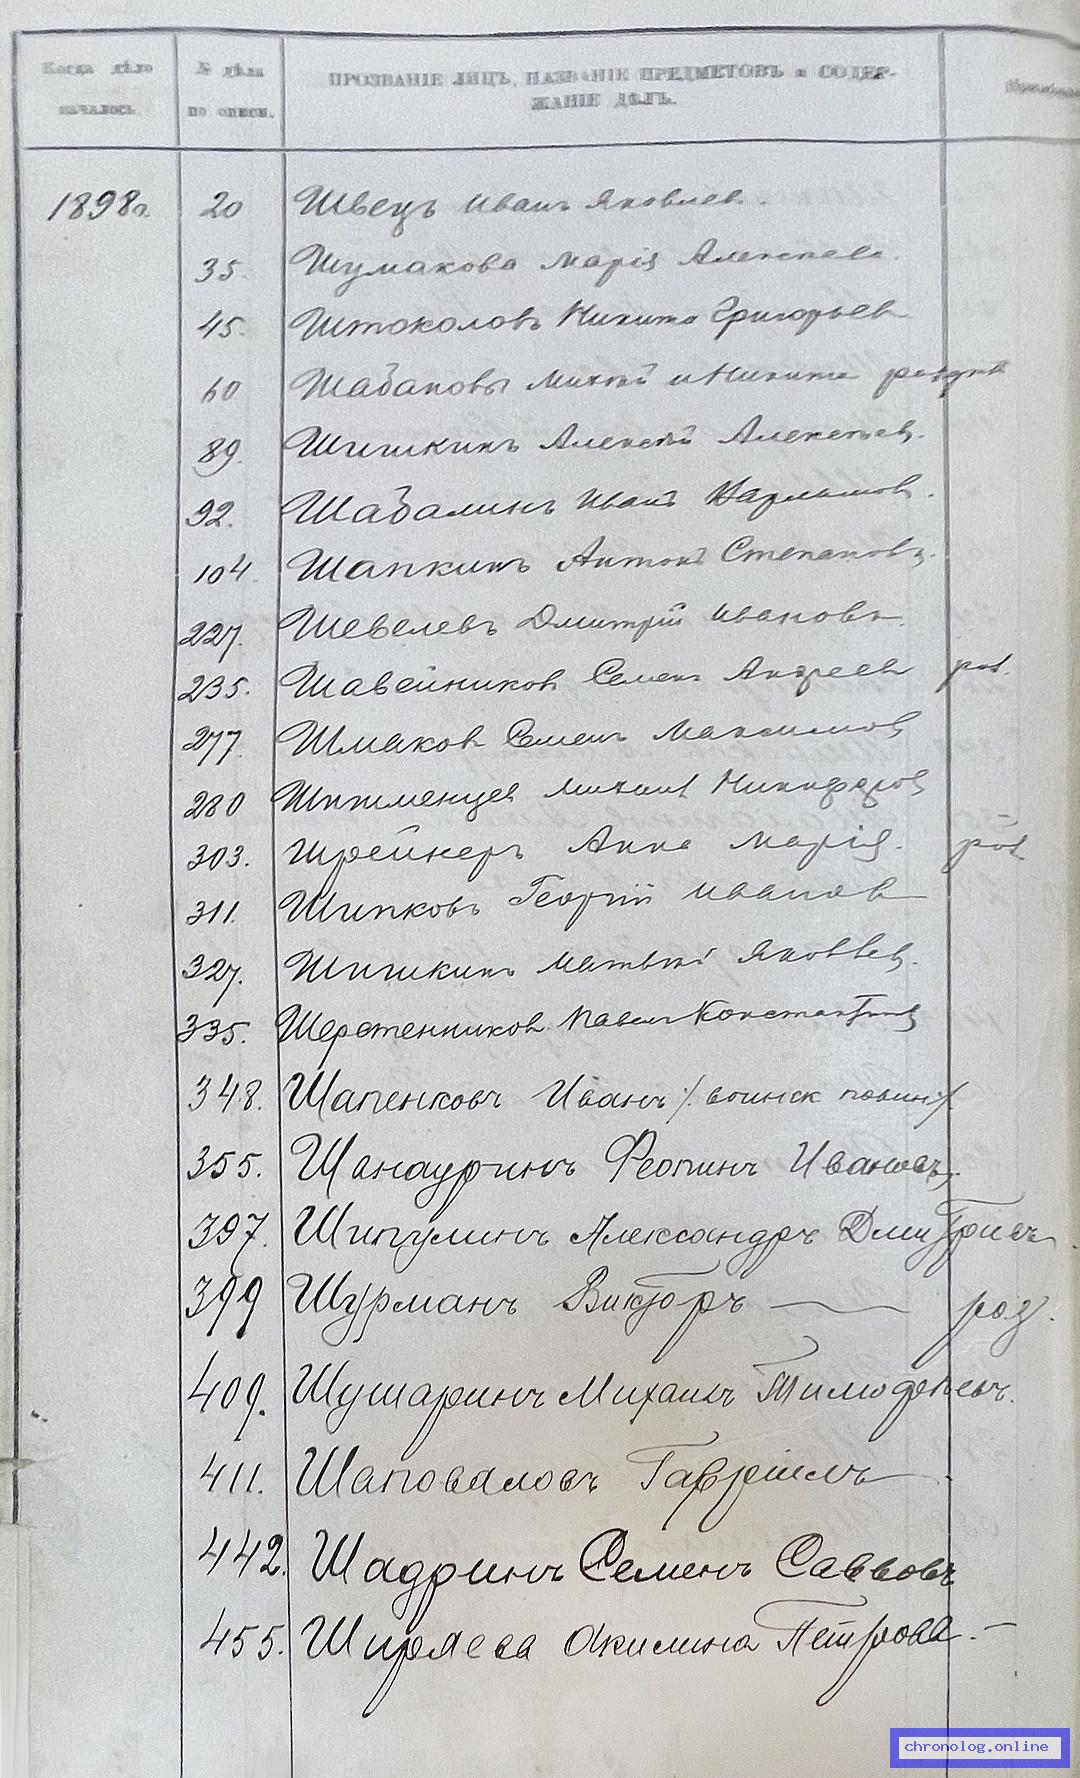 Когда дѣло началось.
№ дѣла по описи.
ПРОЗВАНІЕ ЛИЦЪ, НАЗВАНІЕ ПРЕДМЕТОВЪ и СОДЕР-
ЖАНІЕ ДѢЛЪ.
1898г. 20 Швецъ Иванъ Яковлев.
35. Шумакова Марія Алексеева.
45. Штоколовъ Никита Григорьев
60 Шабановы и Никита
89. Шишкинъ Алексѣй Алексѣев.
92. Шабалинъ Иванъ
104. Шапкинъ Антонъ Степановъ.
227. Шевелевъ Дмитрій Ивановъ.
235. Шавейников Семенъ Андреев
277. Шмаков Семенъ Максимов
280 Михаил Никифоров
303. Шрейнеръ Анна Марія.
311. Шипковъ Георгій Иванов
327. Шишкинъ Матвѣй Яковлев.
335. Шерстенников Павел Константинов
348. Шапенковъ Иванъ /. воинск повин /.
355. Шанауринъ Феопинъ Ивановъ,
397. Шипулинъ Александръ Дмитріевъ
399 Шурманъ Викторъ — роз.
409. Шушаринъ Михаилъ Тимофеевъ.
411. Шаповаловъ Гавріилъ
442. Шадринъ Семенъ Савовъ
455. Ширяева Акилина Петрова. —
chronolog.online